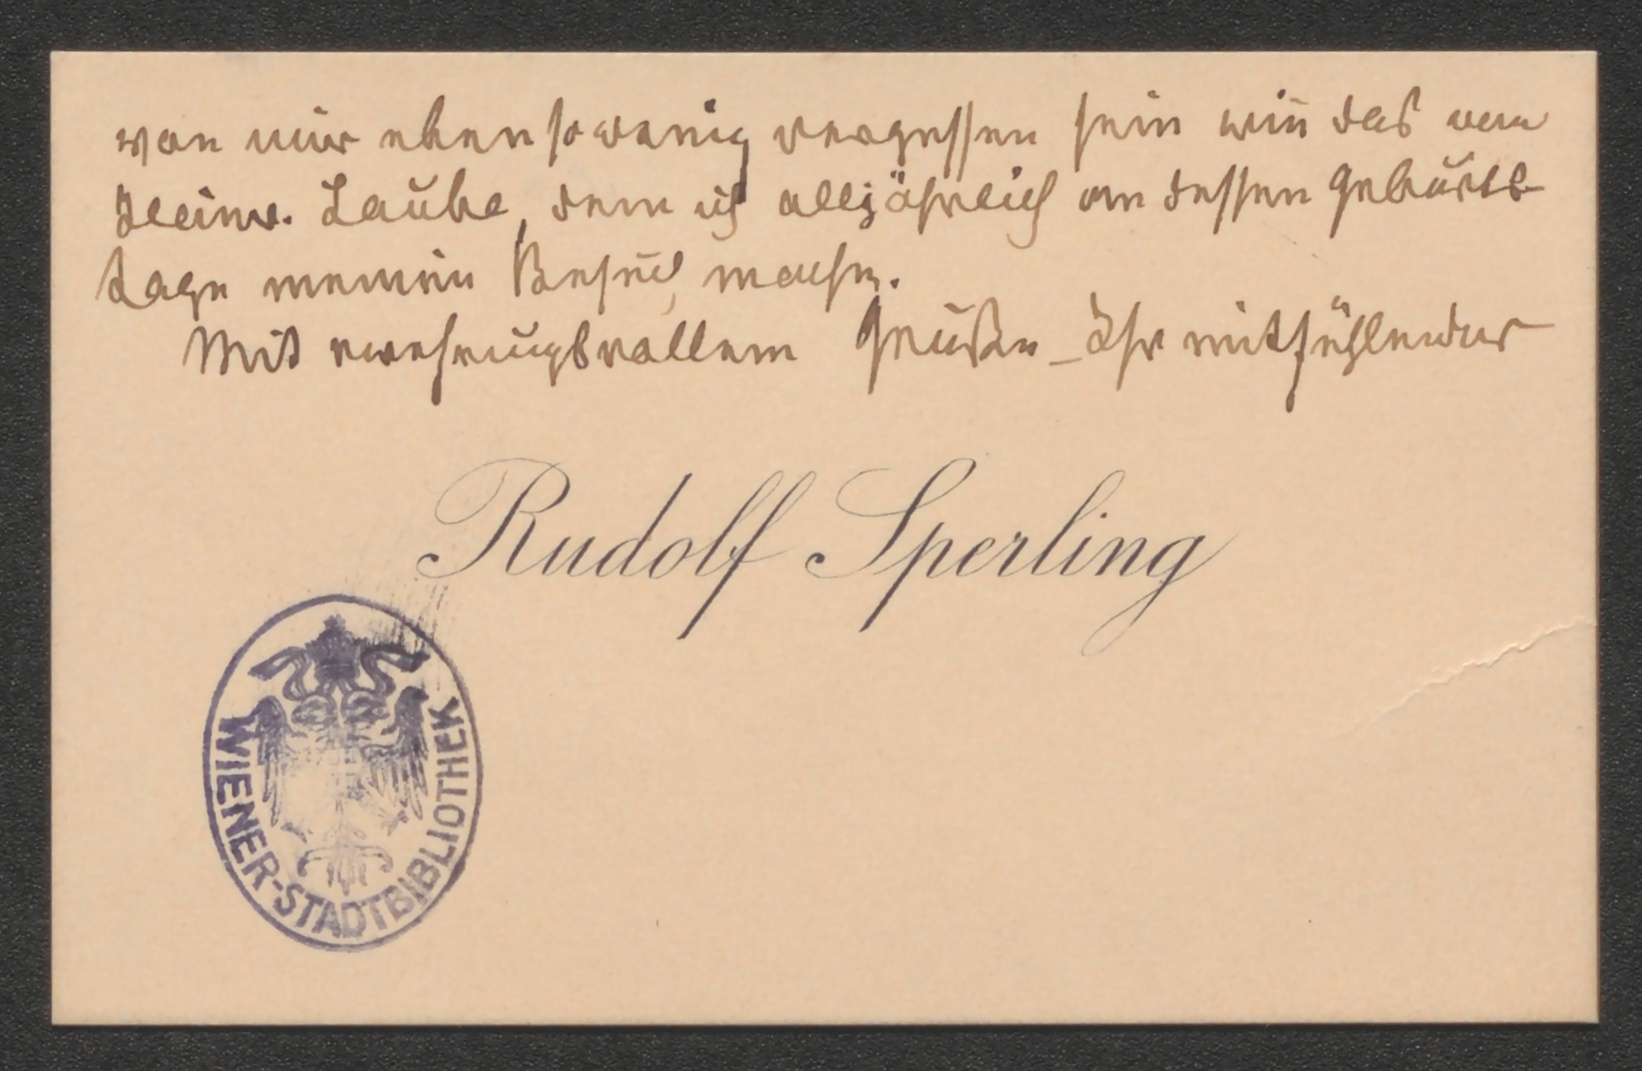 von mir ebensowenig vergessen sein wie das von
Heinr. Laube, dem ich alljährlich an dessen Geburts-
tage meinen Besuch mache.
Mit verehrungsvollem Gruße – Ihr mitfühlender
Rudolf Sperling
WIENER-STADTBIBLIOTHEK